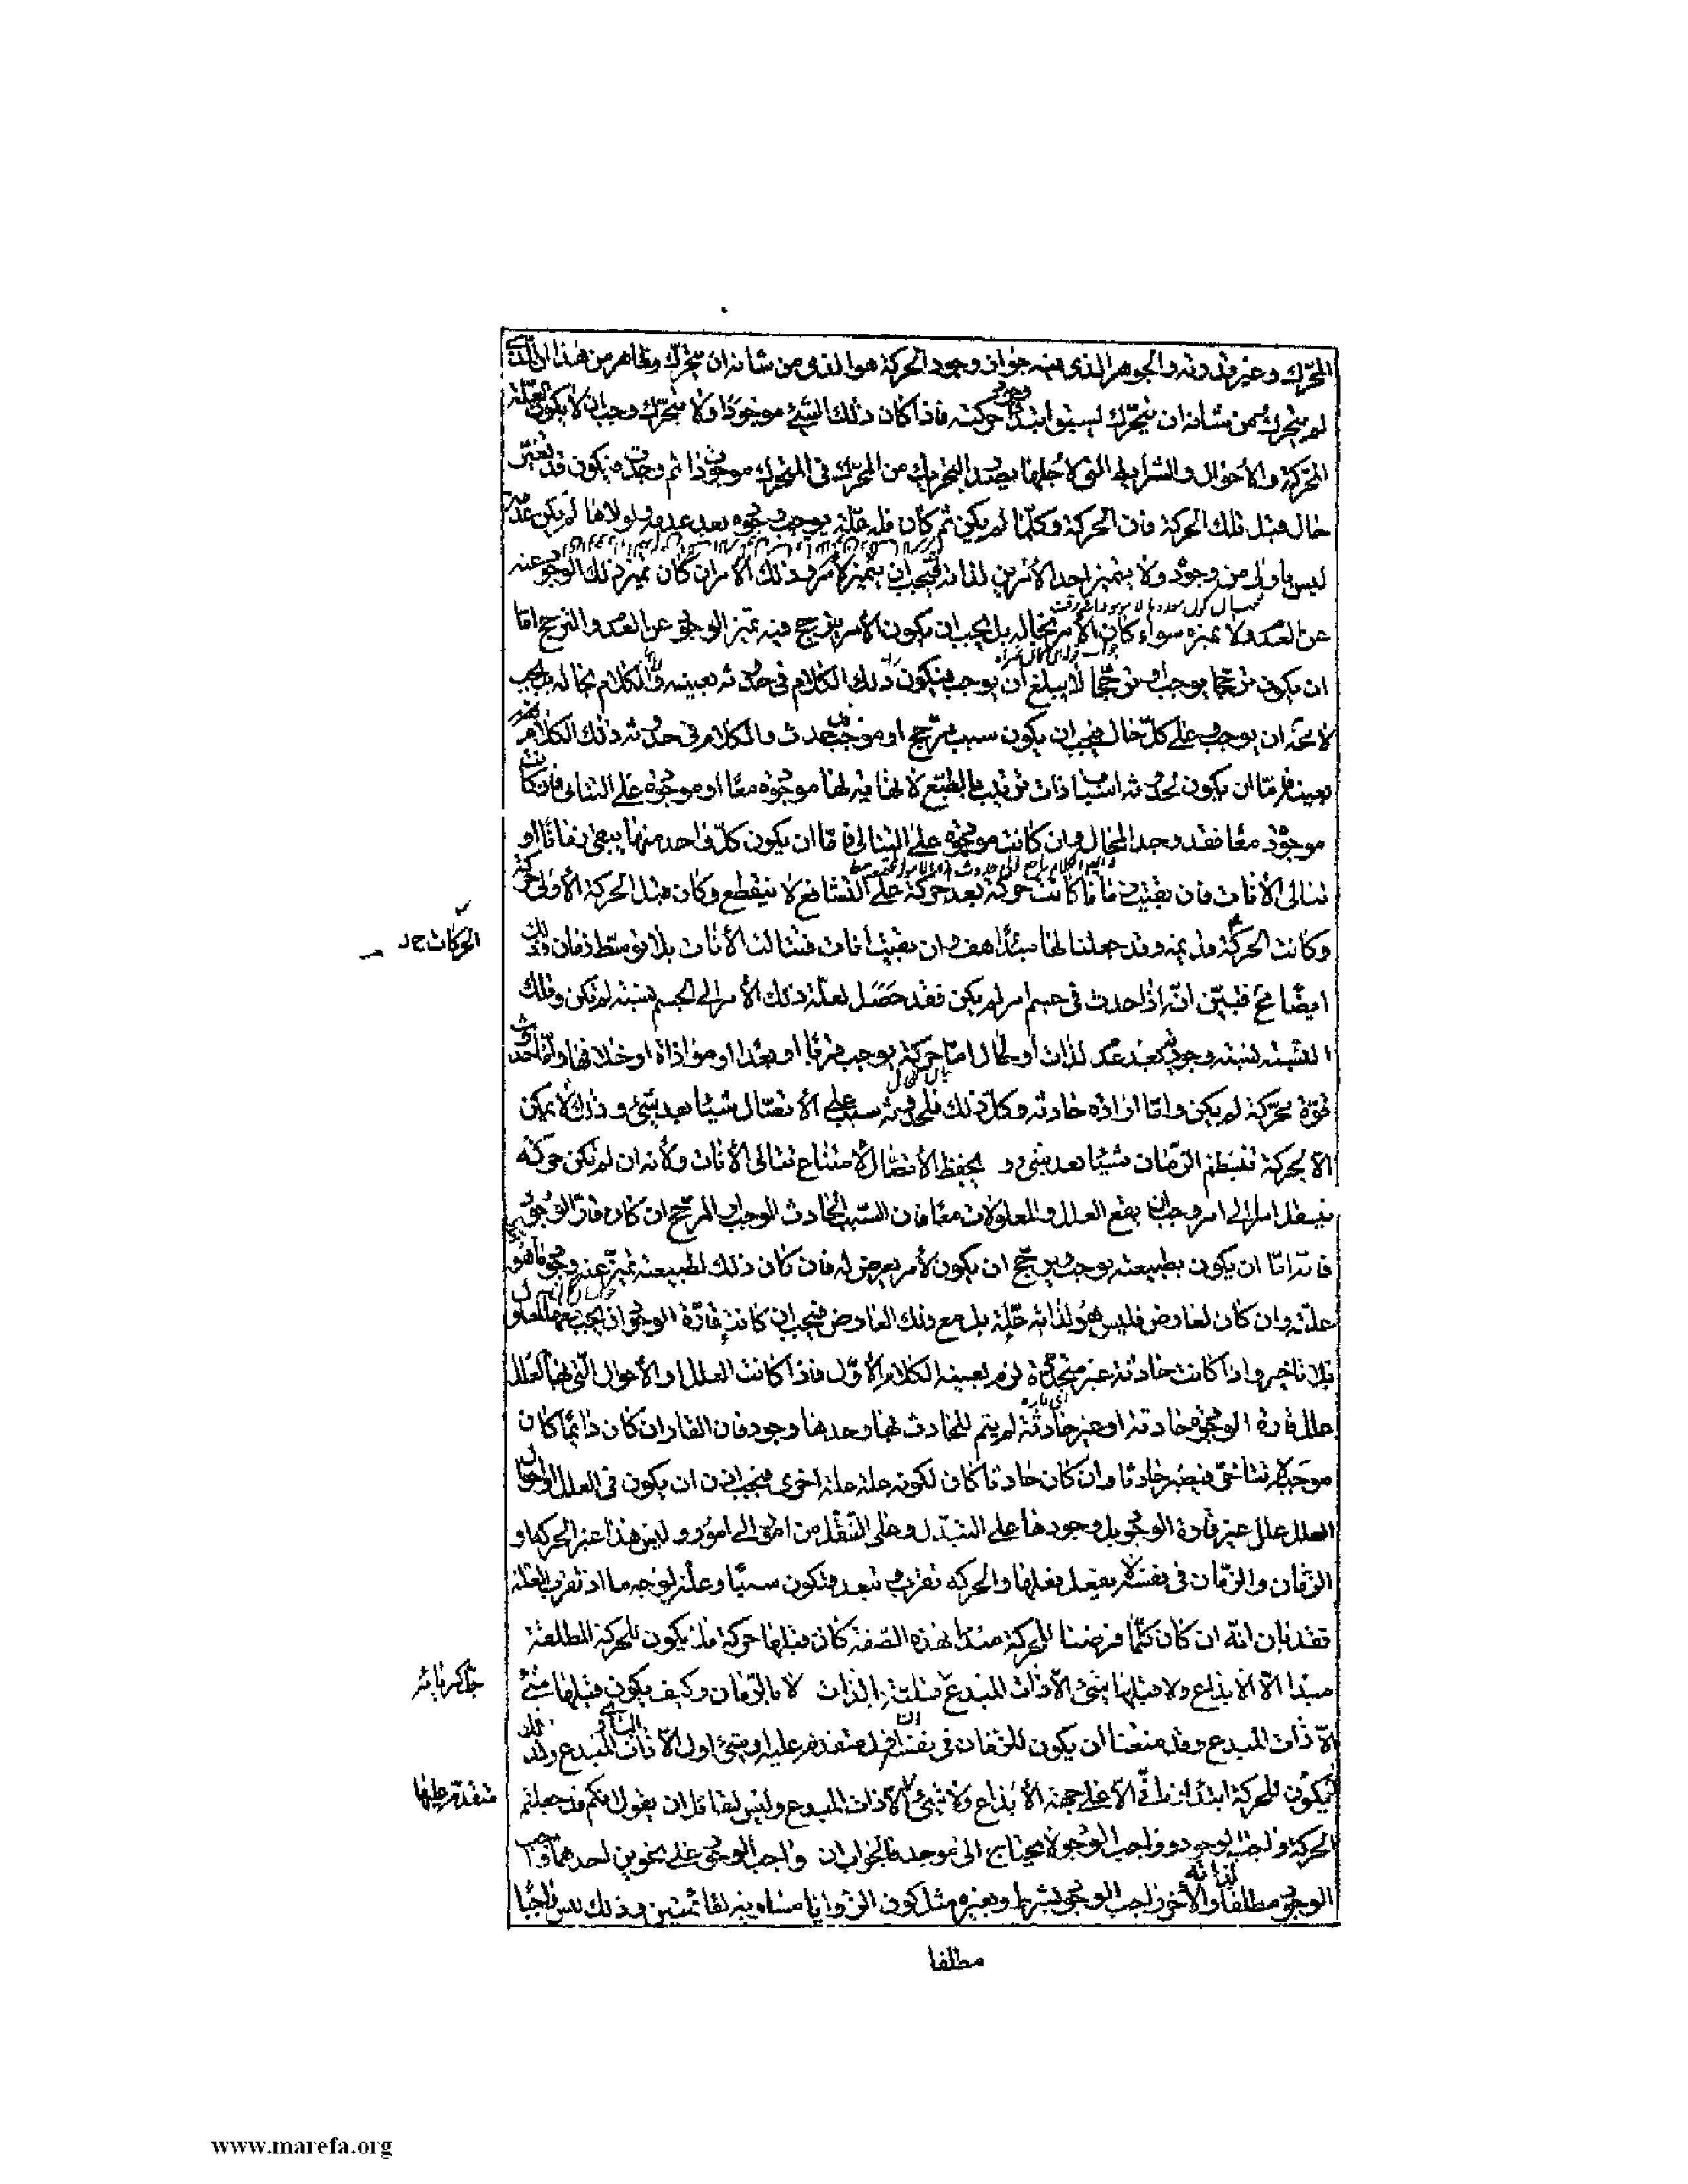 المحرك وغير قدرته والجوهر الذى فيه جواز وجود الحركة هو الذى من شانه ان يتحرك وظاهر من هذا ان الذى
لم يتحرك ومن شانه ان يتحرك ليسبق ابتداء وجود حركته فاذا كان ذلك الشئ موجودا ولا يتحرك وجب ان لا يكون العلة
المحركة والأحوال والشرايط التى لأجلها يصدر التحريك من المحرك فى المتحرك موجودة ثم وجدت فيكون قد تغير
حال قبل تلك الحركة فان الحركة وكلما لم يكن ثم كان فله علة يوجب وجوده بعد عدمه ولولاها لم يكن عدمه
ليس باولى من وجوده ولا يتميز احد الأمرين لذاته فيجب ان يتميز لأمر وذلك الأمر ان كان تميز ذلك الوجود عنه
عن العدم ولا تميزه سواء كان الأمر بحاله بل يجب ان يكون الأمر يترجح فيه تميز الوجود عن العدم والترجح اما
ان يكون ترجحا يوجب او ترجحا لا يبلغ ان يوجب فيكون ذلك الكلام فى حدوثه بعينه والكلام بحاله بل يجب
لا محة ان يوجب وعلى كل حال فيجب ان يكون سبب مرجح او موجب حدث والكلام فى حدوثه ذلك الكلام
بعينه فاما ان يكون لحدوثه اسباب ذات ترتيب بالطبع لا نهاية لها موجودة معا او موجودة على التتالى فان كانت
موجودة معا فقد وجد المحال وان كانت موجودة على التتالى فاما ان يكون كل واحد منها يبقى زمانا او
تتالى الأنات فان بقيت زمانا كانت حركة بعد حركة على التشافع لا ينقطع وكان قبل الحركة الأولى حركة
وكانت الحركة قديمة وقد جعلنا لها مبتدأ هف وان بقيت انات فتتالت الأنات بلا توسط زمان وذلك
ايضا مح فتبين انه اذا حدث فى جسم امر لم يكن فقد حصل لعلة ذلك الأمر الى الجسم نسبة لم تكن وتلك
النسبة نسبة وجود بعد عدم لذات او لحال اما حركة يوجب قربا او بعدا او موازاة او خلافها واما حدوث
قوة محركة لم يكن واما ارادة حادثة وكل ذلك فلحدوثه سبب على الأتصال شيئا بعد شئ وذلك لا يمكن
الا بحركة تنتظم الزمان شيئا بعد شئ و يحفظ الأتصال لأمتناع تتالى الأنات ولأنه ان لم تكن حركة
تنقل امرا الى امر وجب ان يقع العلل والمعلولات معا فان السبب الحادث الموجب او المرجح ان كان قار الوجود
فانه اما ان يكون بطبيعته يوجب ويرجح ان يكون لأمر يعرض له فان كان ذلك لطبيعته تميز عنه وجود ما هو
علته وان كان لعارض فليس هو لذاته علة بل مع ذلك العارض فيجب ان كانت قارة الوجود ان يجب معها المعلول
بلا تاخير واذا كانت حادثة غير متجددة لزم بعينه الكلام الأول فاذا كانت العلل او الأحوال التى بها العلل
علل قارة الوجود حادثة او غير حادثة لم يتم للحادث بها وحدها وجود فان القار ان كان دائما كان
موجبه لا يتاخر فيصير حادثا وان كان حادثا كان لكونه علة علة اخرى فيجب اذن ان يكون فى العلل واحوال
العلل علل غير قارة الوجود بل وجودها على التبدل وعلى التنقل من امور الى امور وليس هذا غير الحركة او
الزمان والزمان فى نفسه لا يفعل فعلها والحركة تقرب وتبعد فتكون سببا وعلة بوجه ما اذ تقرب العلة
فقد بان انه ان كان كلما فرضنا للحركة مبتدأ بهذه الصفة كان قبلها حركة فلا يكون للحركة المطلقة
مبدا الا الأبداع ولا قبلها شئ الا ذات المبدع قبلية بالذات لا بالزمان وكيف يكون قبلها شئ
الا ذات المبدع وقد منعنا ان يكون للزمان فى نفسه ان اول متقدم عليه او شئ اول الا ذات المبدع ولذلك
لا يكون للحركة ابتداء زمانى الا على جهة الأبداع ولا شئ الا ذات المبدع وليس لقائل ان يقول انكم قد جعلتم
الحركة واجبة الوجود وواجب الوجود لا يحتاج الى موجد فالجواب ان واجب الوجود على نحوين احدهما واجب
الوجود مطلقا لذاته والأخر واجب الوجود بشرط وبغيره مثل كون الزوايا مساوية لقائمتين وذلك ليس واجبا
الحركات ح ل
متقدم عليها
مطلقا
www.marefa.org